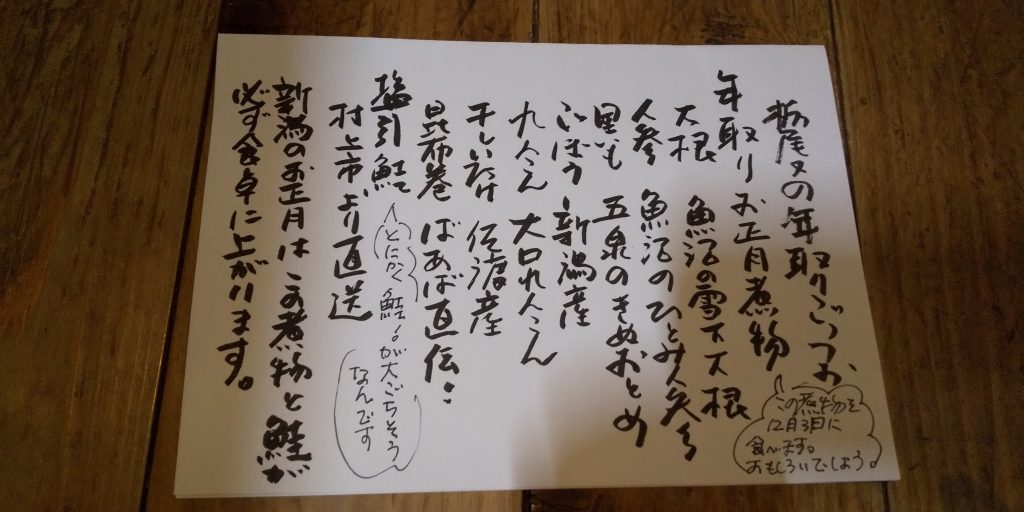 栃尾又の年取りごっつお
年取りお正月煮物
この煮物を
12月31日に
食べます。
おもしろいでしょう。
大根 魚沼の雪下大根
人参 魚沼のひとみ人参
里いも 五泉のきぬおとめ
ごぼう 新潟産
れんこん 大口れんこん
干し椎茸 佐渡産
昆布巻 ばあば直伝
塩引鮭
とにかく鮭!が大ごちそう
なんです
村上市より直送
新潟のお正月はこの煮物と鮭が
必ず食卓に上がります。